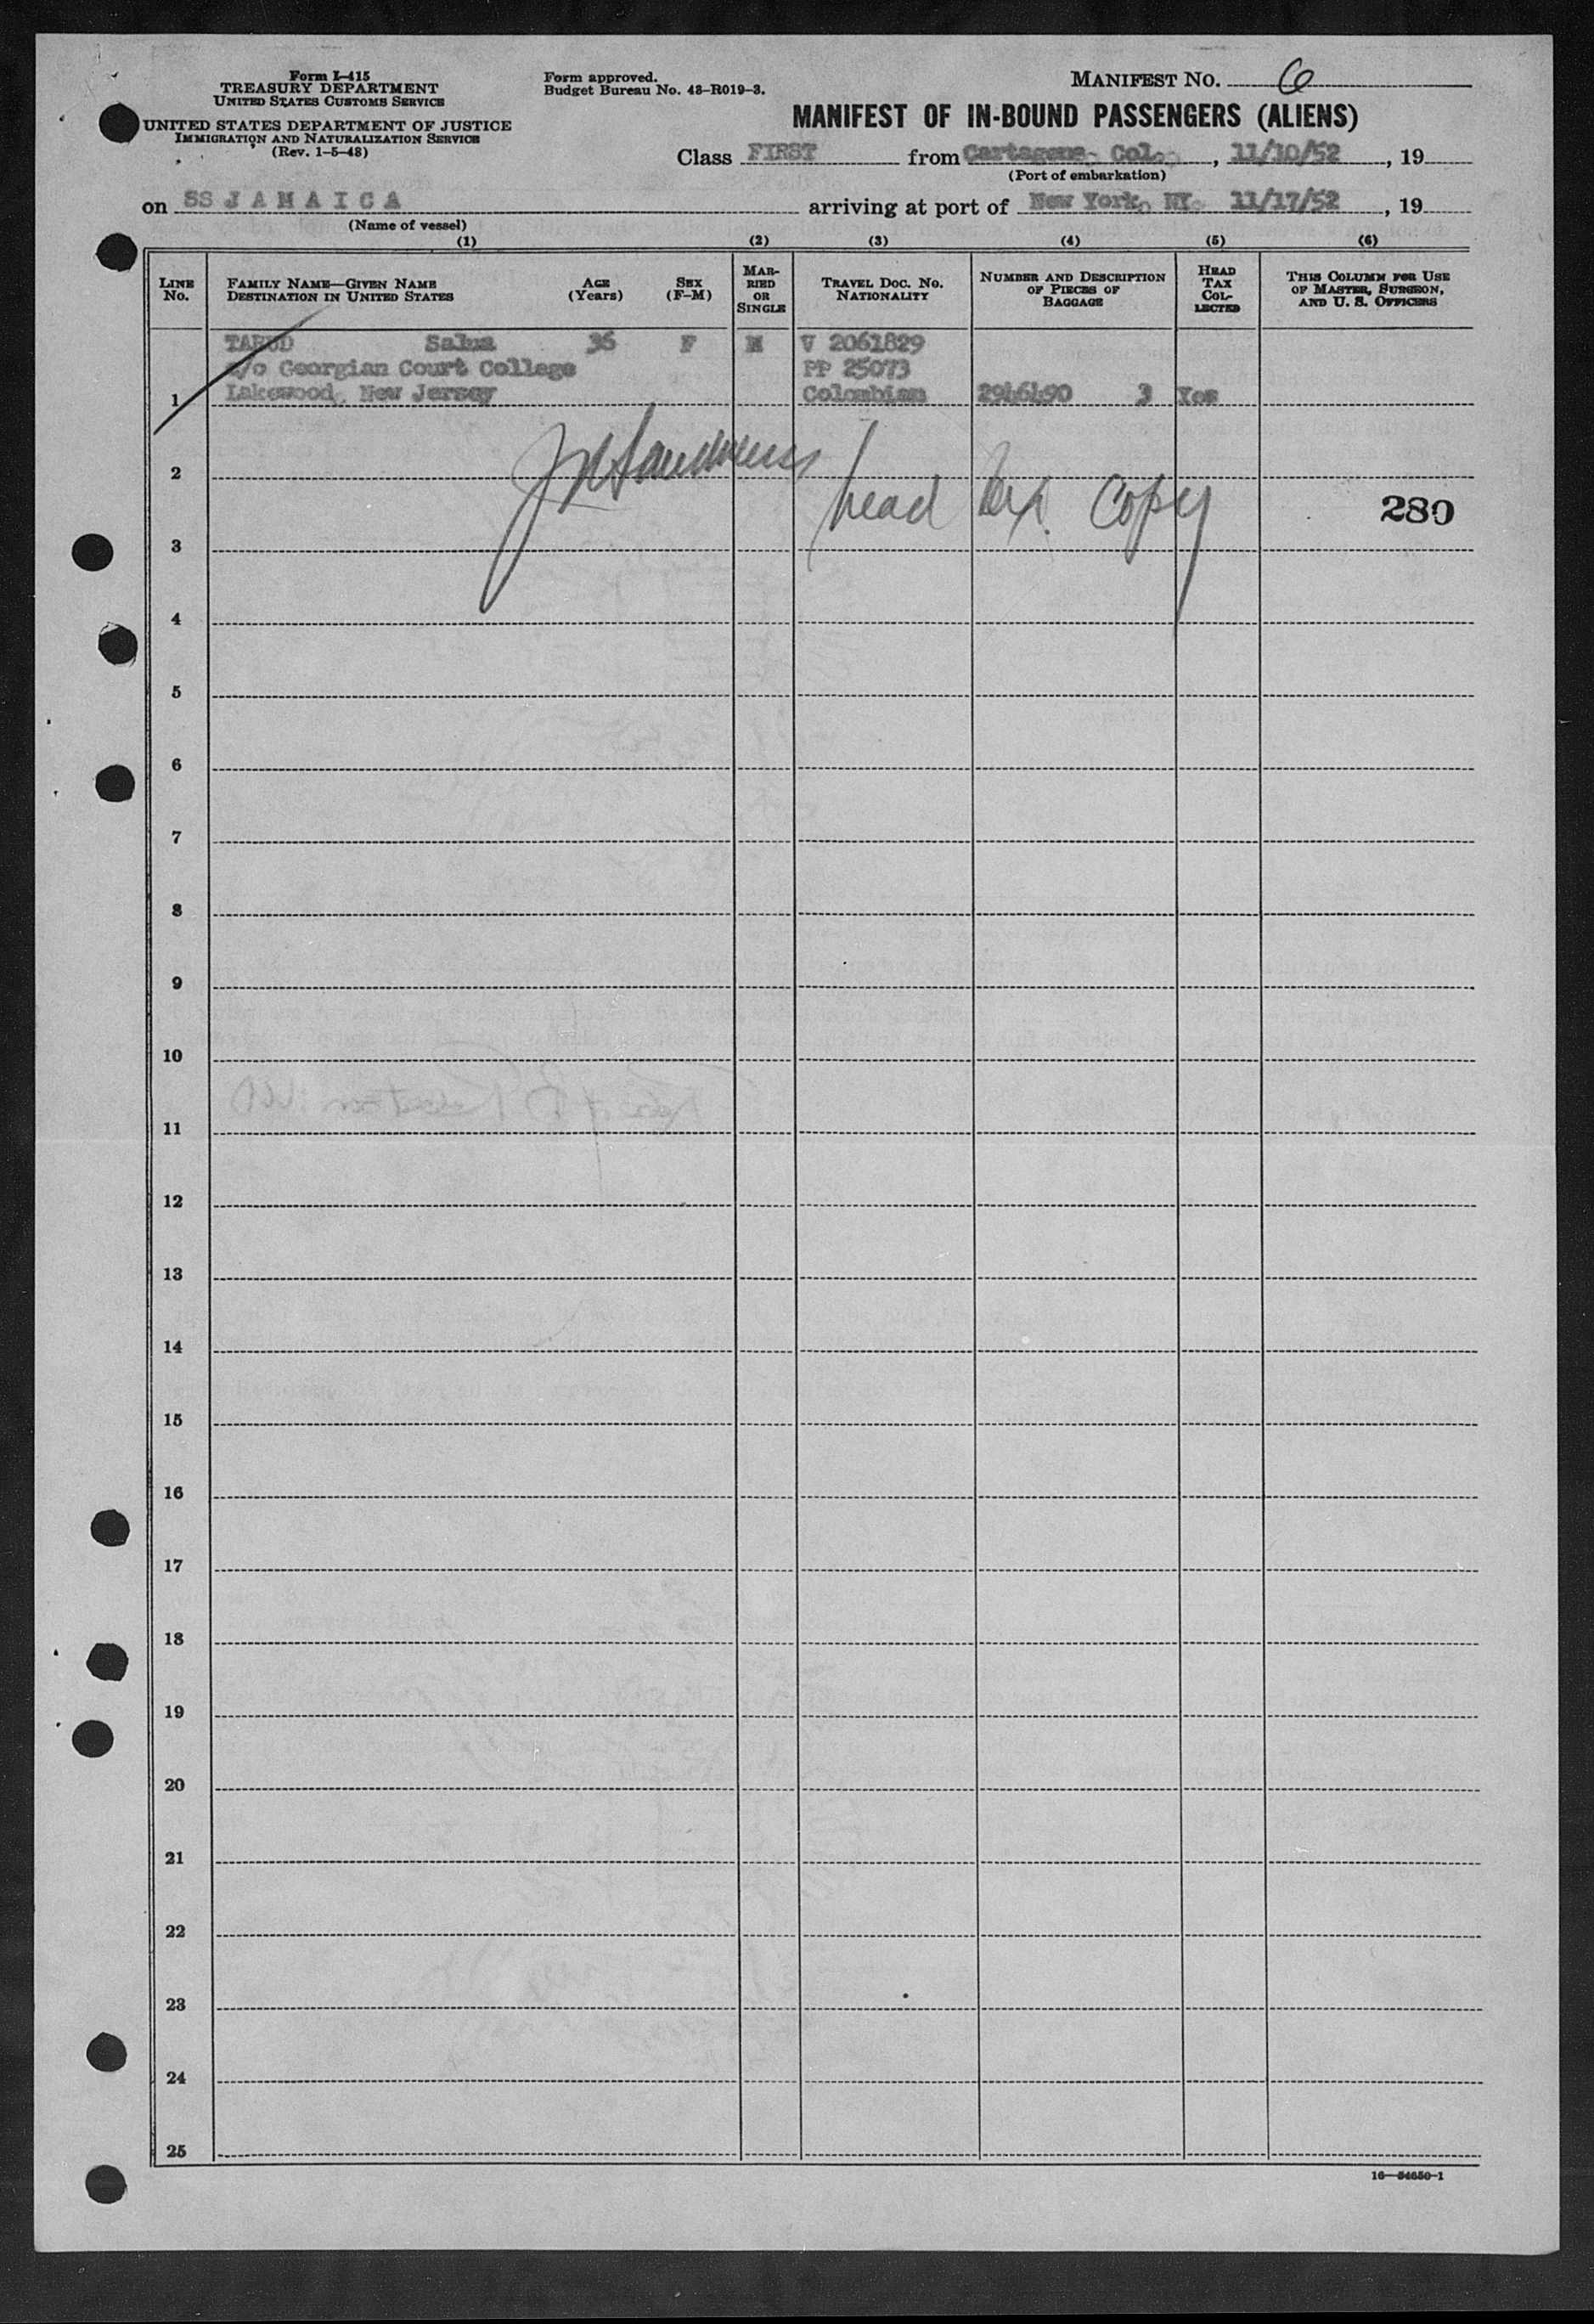 Form I-415
TREASURY DEPARTMENT
UNITED STATES CUSTOMS SERVICE
UNITED STATES DEPARTMENT OF JUSTICE
IMMIGRATION AND NATURALIZATION SERVICE
(Rev. 1-5-48)
Form approved.
Budget Bureau No. 43-R019-3.
MANIFEST NO. 6
MANIFEST OF IN-BOUND PASSENGERS (ALIENS)
Class FIRST from Cartagena, Col., 11/10/52, 19
(Port of embarkation)
on SS JAMAICA arriving at port of New York, NY. 11/17/52, 19
(Name of vessel)
(1) (2) (3) (4) (5) (6)
LINE NO.
FAMILY NAME—GIVEN NAME
DESTINATION IN UNITED STATES
AGE
(Years)
SEX
(F-M)
MAR-
RIED
OR
SINGLE
TRAVEL DOC. NO.
NATIONALITY
NUMBER AND DESCRIPTION
OF PIECES OF
BAGGAGE
HEAD
TAX
COL-
LECTED
THIS COLUMN FOR USE
OF MASTER, SURGEON,
AND U. S. OFFICERS
TARUD Salua 36 F M V 2061829
c/o Georgian Court College PP 25073
1 Lakewood, New Jersey Colombian 2946490 3 Yes
2
head tax Copy 280
3
4
5
6
7
8
9
10
11
12
13
14
15
16
17
18
19
20
21
22
23
24
25
16—54650-1